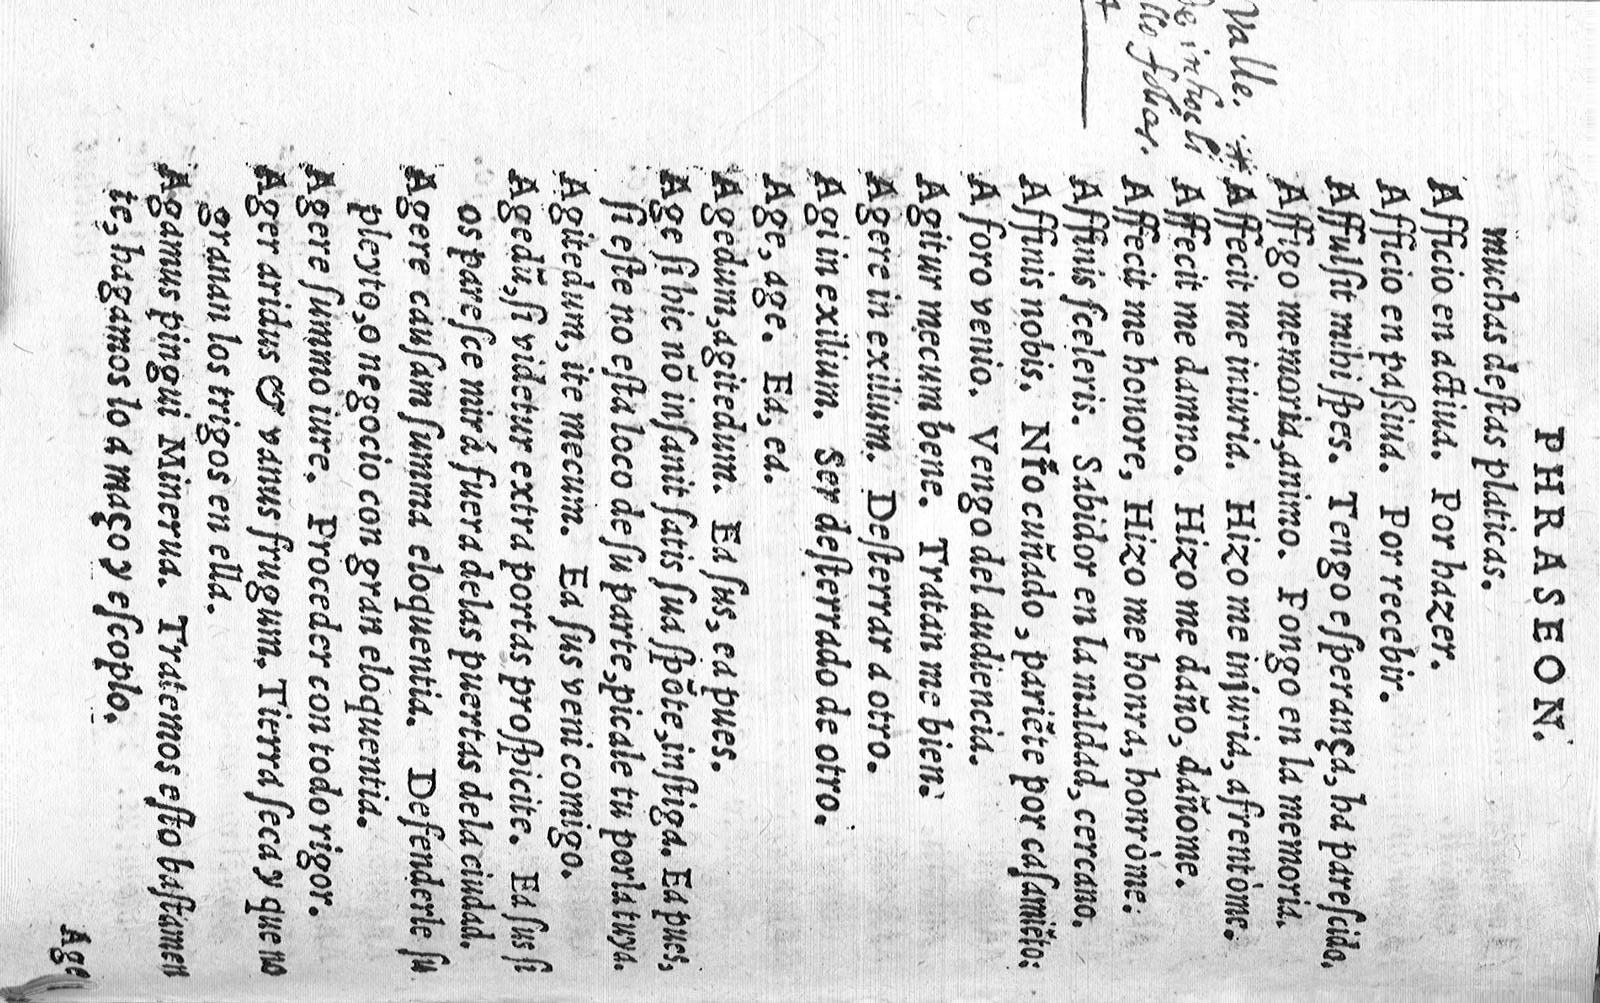 PHRASEON.
muchas destas platicas.
Afficio en actiua. Por hazer.
Afficio en paßiua. Por recebir.
Affulsit mihi spes. Tengo esperança, ha parescido.
Affigo memoria, animo. Pongo en la memoria.
Affecit me iniuria. Hizo me injuria, afrentòme.
Affecit me damno. Hizo me daño, dañome.
Affecit me honore, Hizo me honrra, honròme.
Affinis sceleris. Sabidor en la maldad, cercano.
Affinis nobis. Nřo cuñado, pariẽte por casamiẽto:
A foro venio. Vengo del audiencia.
Agitur mecum bene. Tratan me bien.
Agere in exilium. Desterrar a otro.
Agi in exilium. Ser desterrado de otro.
Age, age. Ea, ea.
Agedum, agitedum. Ea sus, ea pues.
Age si hic nõ insanit satis sua spõte, instiga. Ea pues,
si este no esta loco de su parte, picale tu por la tuya.
Agitedum, ite mecum. Ea sus veni comigo.
Agedũ, si videtur extra portas prospicite. Ea sus si
os paresce mirá fuera delas puertas dela ciudad.
Agere causam summa eloquentia. Defenderle su
pleyto, o negocio con gran eloquentia.
Agere summo iure. Proceder con todo rigor.
Ager aridus & vanus frugum, Tierra seca y que no
granan los trigos en ella.
Agamus pingui Minerua. Tratemos esto bastamen
te, hagamos lo a maço y escoplo.
Age
Valle.